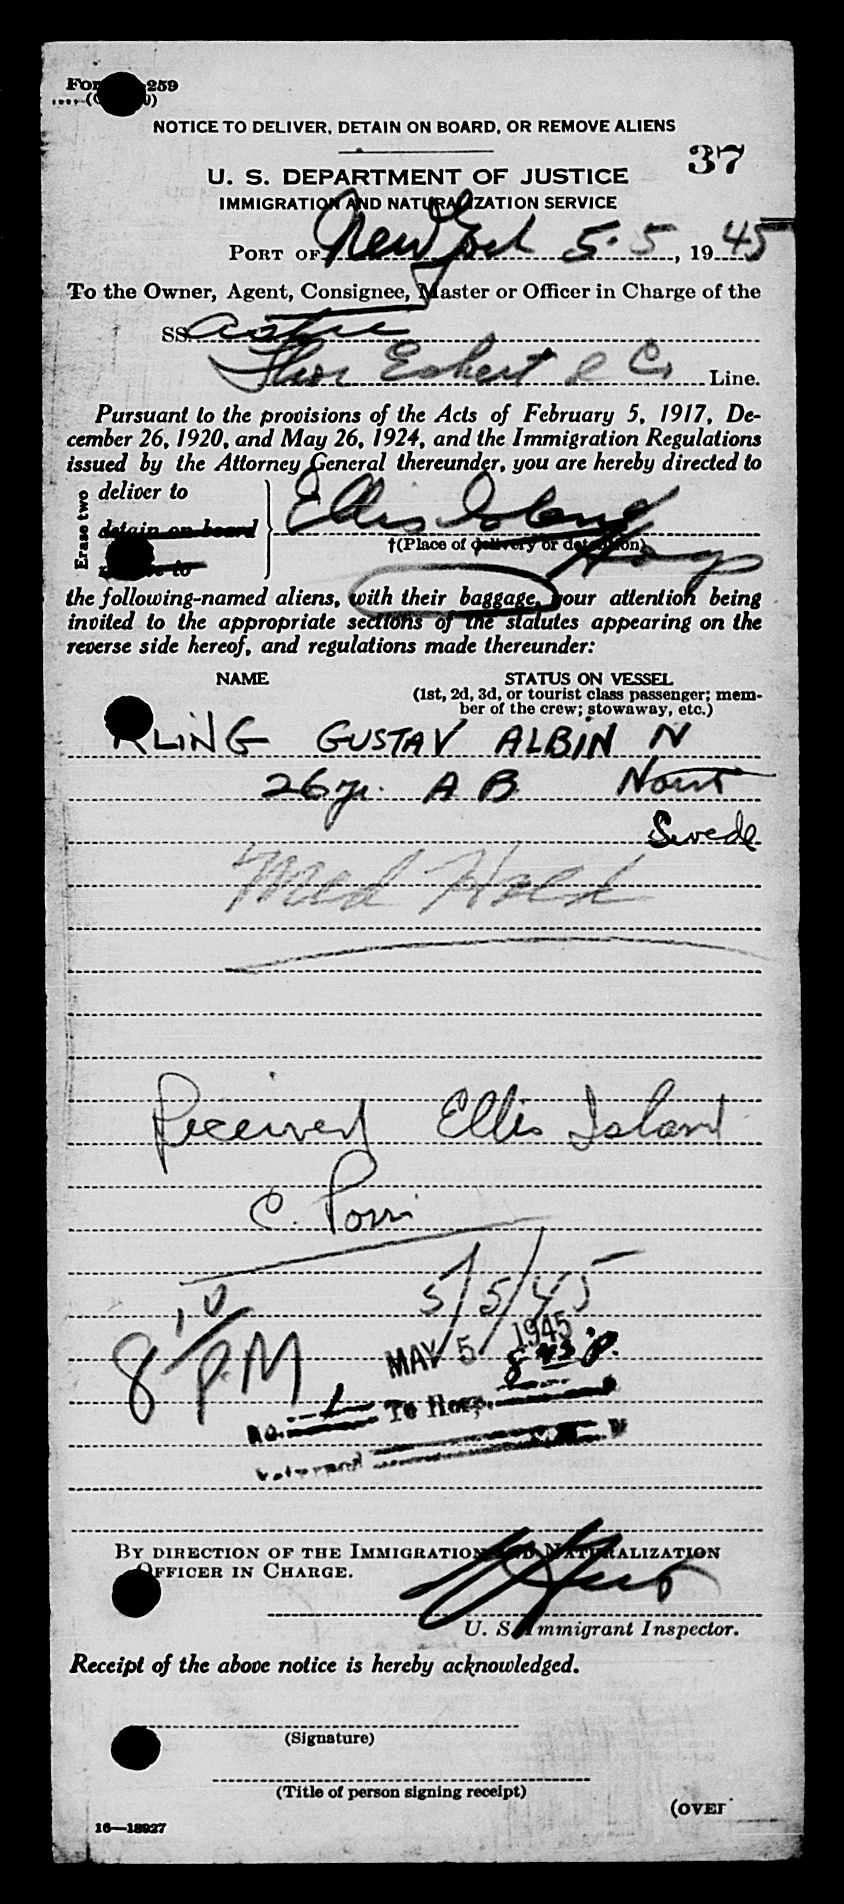 For 259
NOTICE TO DELIVER, DETAIN ON BOARD, OR REMOVE ALIENS
37
U. S. DEPARTMENT OF JUSTICE
IMMIGRATION AND NATURALIZATION SERVICE
PORT OF New York 5-5, 1945
To the Owner, Agent, Consignee, Master or Officer in Charge of the
SS
Thor Eckert & Co. Line.
Pursuant to the provisions of the Acts of February 5, 1917, De-
cember 26, 1920, and May 26, 1924, and the Immigration Regulations
issued by the Attorney General thereunder, you are hereby directed to
Erase two
deliver to
detain on board
Ellis Island
†(Place of delivery or detention)
Hosp
the following-named aliens, with their baggage, your attention being
invited to the appropriate sections of the statutes appearing on the
reverse side hereof, and regulations made thereunder:
NAME STATUS ON VESSEL
(1st, 2d, 3d, or tourist class passenger; mem-
ber of the crew; stowaway, etc.)
KLING GUSTAV ALBIN N
26 yr. A B
Swede
Med Held
Received Ellis Island
C.
5/5/45
8 10/PM
MAY 5 1945
8 43 P.
No. 1 To Hosp.
BY DIRECTION OF THE IMMIGRATION AND NATURALIZATION
OFFICER IN CHARGE.
U. S. Immigrant Inspector.
Receipt of the above notice is hereby acknowledged.
(Signature)
(Title of person signing receipt)
(OVER
16—18927